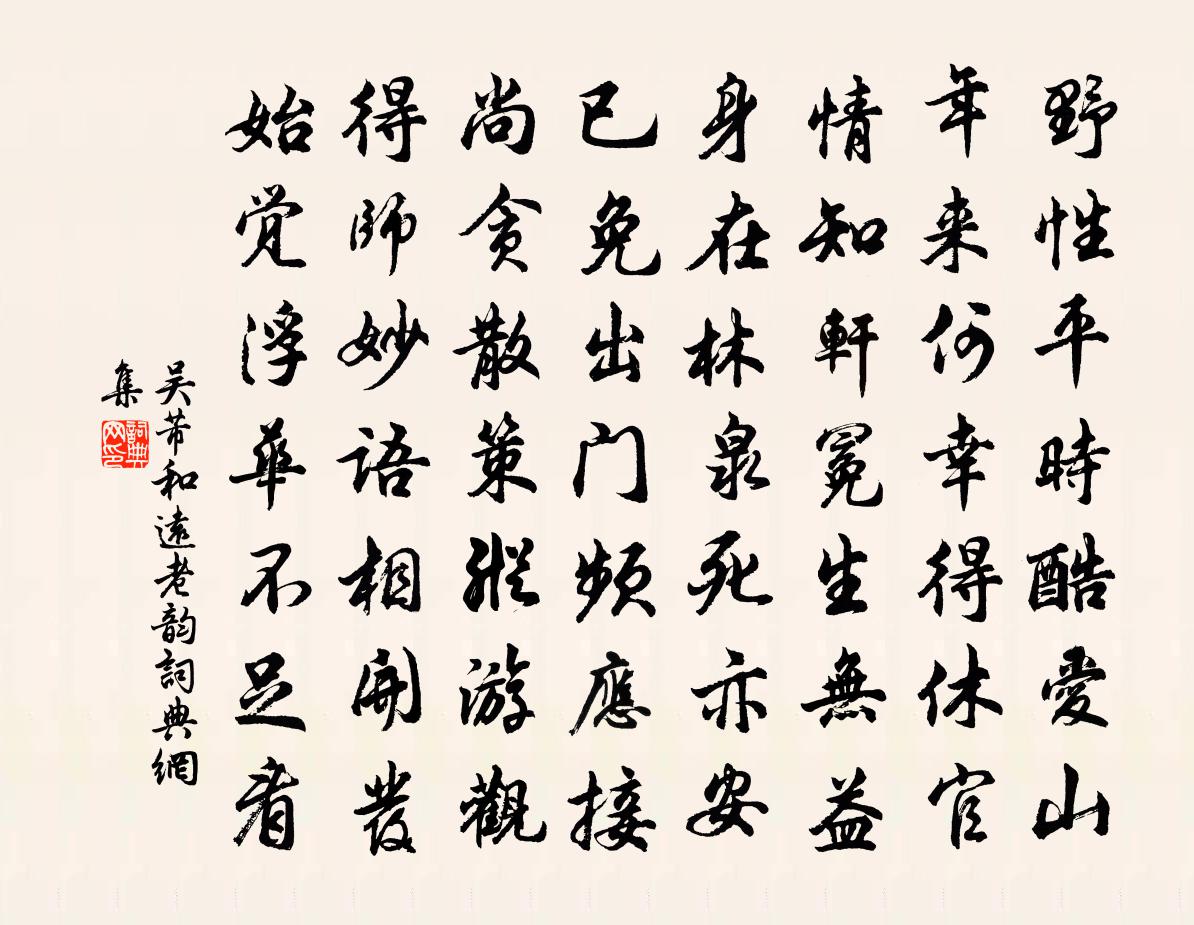 野性平時酷愛山
年来何幸得休官
情知軒冕生無益
身在林泉死亦安
已免出門頻應接
尚贪散策縱游觀
得師妙语相開發
始觉浮華不足看
吴芾和遠老韵詞典網
集
詞典
网印